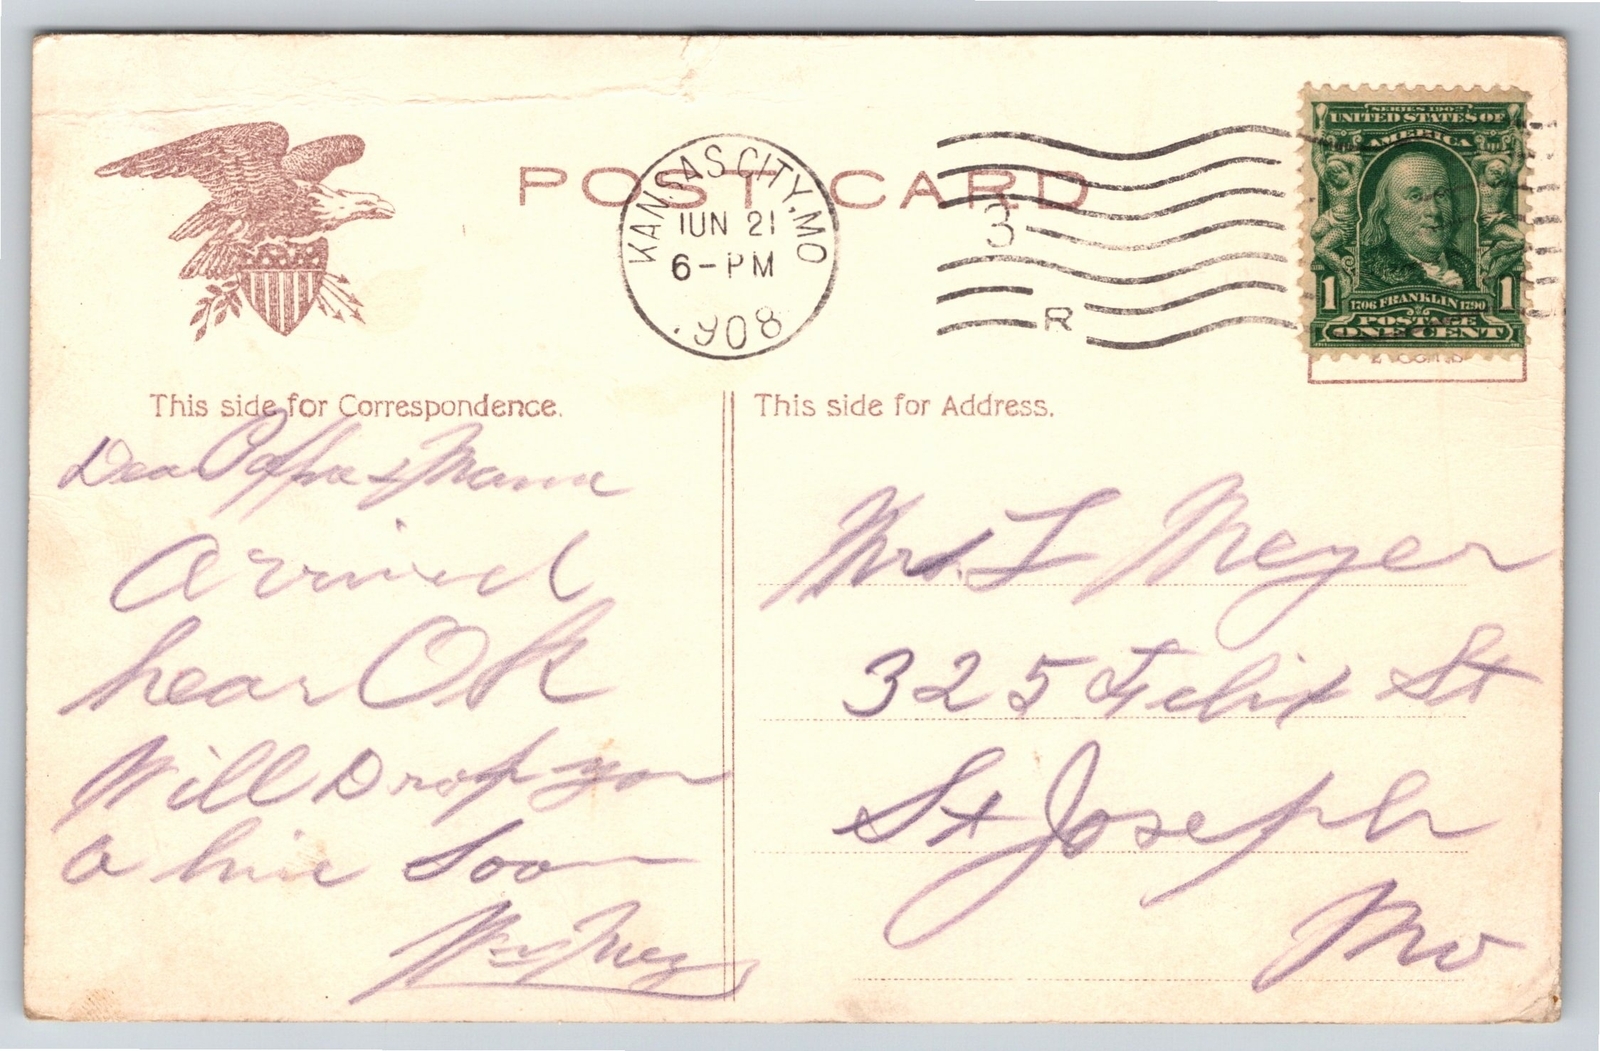 POST CARD
KANSAS CITY, MO
JUN 21
6-PM
1908
3
R
SERIES 1902
UNITED STATES OF
AMERICA
1 1706 FRANKLIN 1790 1
POSTAGE
ONE CENT
This side for Correspondence.
Dear Pappa & Mama
Arrived
hear OK
Will Drop you
a line Soon
Wm
This side for Address.
Mrs. L Meyer
325 Felix St
St Joseph
Mo